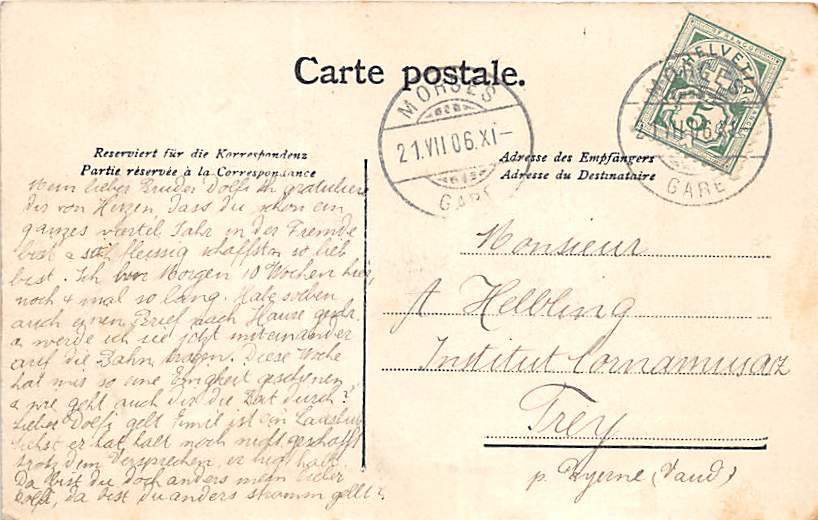 Carte postale.
HELVETIA
5
MORGES
21.VII.06.XI-
GARE
MORGES
21.VII.06.XI-
GARE
Reserviert für die Korrespondenz
Partie réservée à la Correspondance
Adresse des Empfängers
Adresse du Destinataire
Mein lieber Bruder Dolfi Ich gratuliere
dir von Herzen, dass du schon ein
ganzes viertel Jahr in der Fremde
bist & so fleissig schaffst & so lieb
bist. Ich bin Morgen 10 Wochen hier,
noch 4 mal so lang. Habe soeben
auch einen Brief nach Hause geschr.
& werde ich sie jetzt miteinander
auf die Bahn tragen. Diese Woche
hat mis so eine Ewigkeit geschienen,
& wie geht auch dir die Zeit durch?
Lieber Dolfi gelt Emil ist ein
er hat halt noch nicht geschafft
trotz dem Versprechen, er
Da bist du doch anders mein lieber
Dolfi, da bist du anders stramm gellt?
Monsieur
A Helbling
Institut Cornamusaz
Trey
p. Payerne (Vaud)